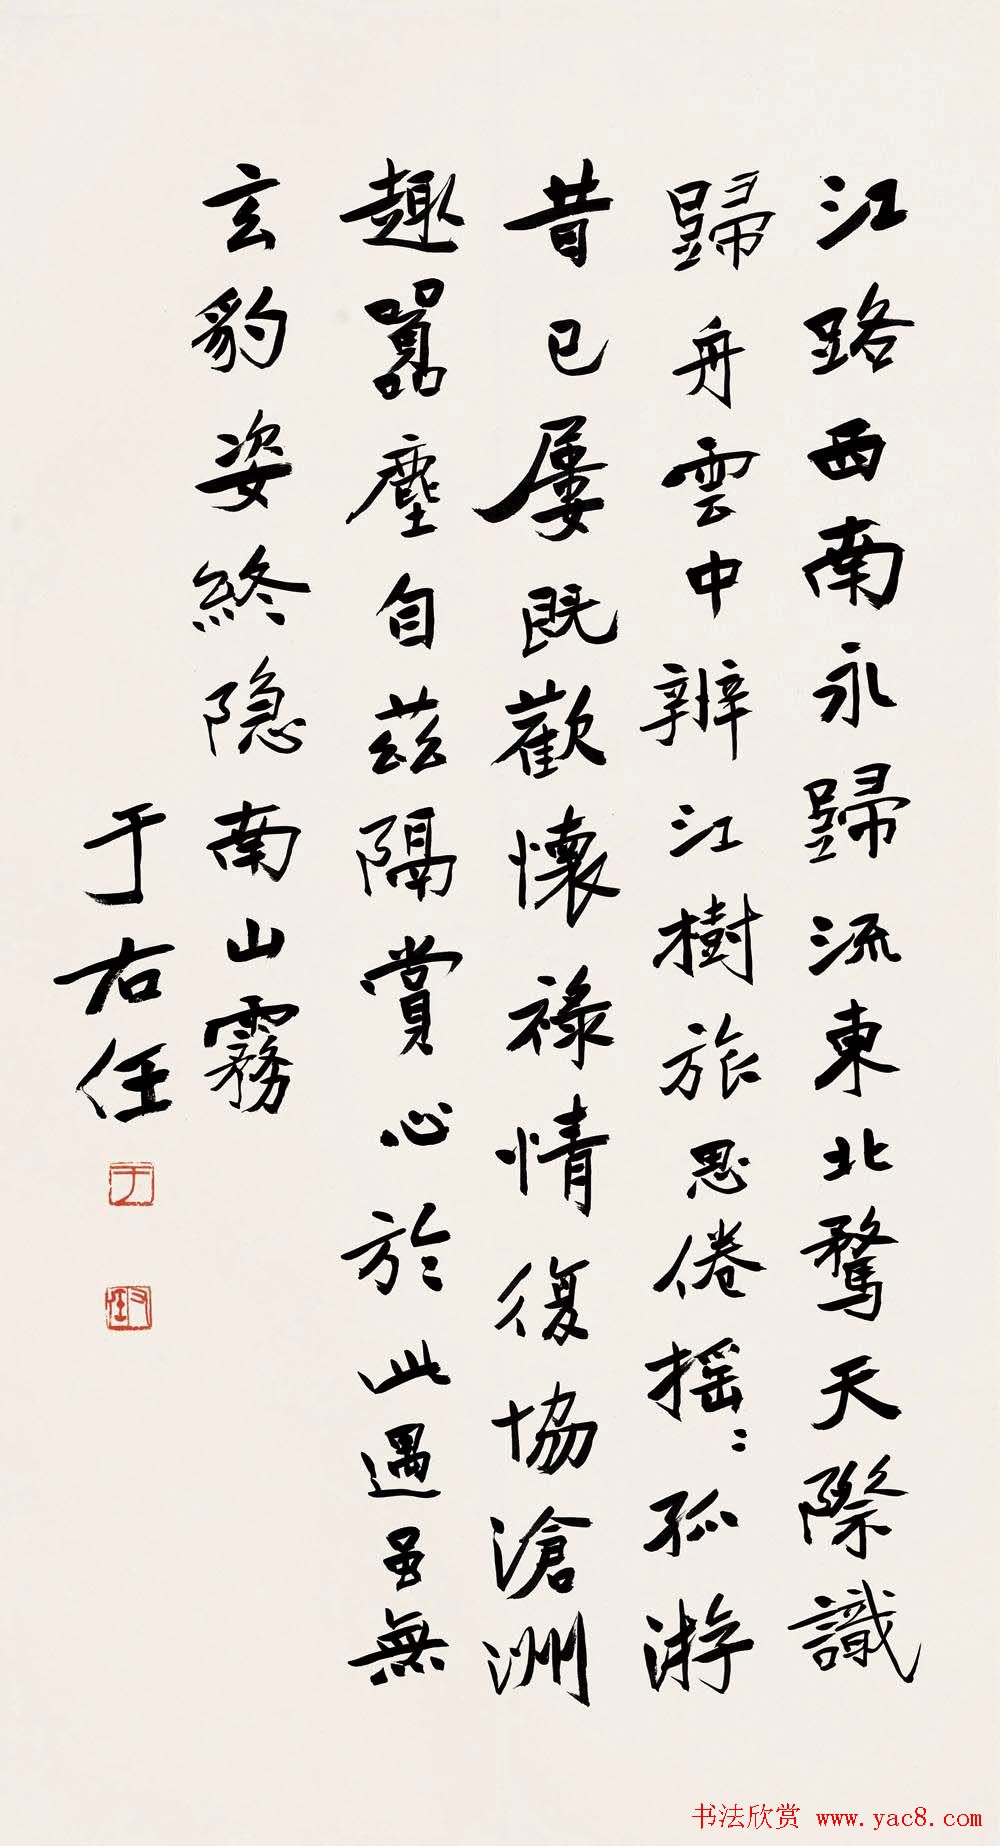 江路西南永歸流東北騖天際識
歸舟雲中辨江樹旅思倦搖〻孤游
昔已屢既歡懷祿情復協滄洲
趣囂塵自茲隔賞心於此遇虽無
玄豹姿終隐南山霧
于右任
于
右任
书法欣赏 www.yac8.com